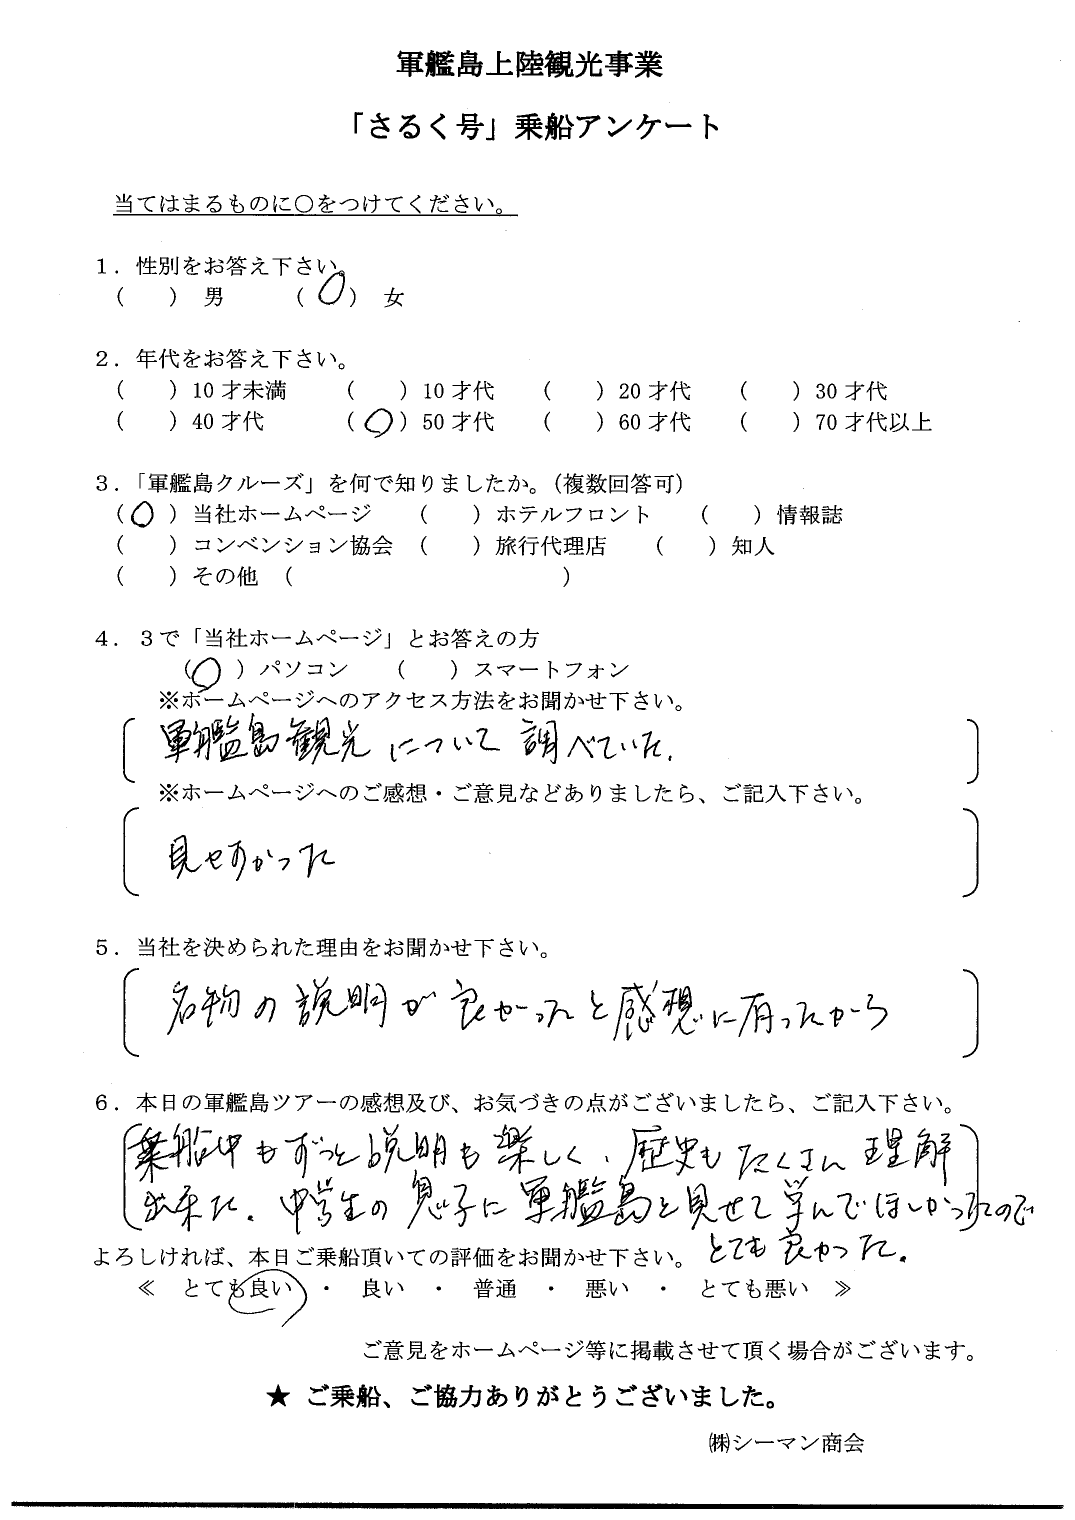 軍艦島上陸観光事業
「さるく号」乗船アンケート
当てはまるものに○をつけてください。
１．性別をお答え下さい。
（　　）男　　（○）女
２．年代をお答え下さい。
（　　）10才未満　（　　）10才代　（　　）20才代　（　　）30才代
（　　）40才代　（○）50才代　（　　）60才代　（　　）70才代以上
３．「軍艦島クルーズ」を何で知りましたか。（複数回答可）
（○）当社ホームページ　（　　）ホテルフロント　（　　）情報誌
（　　）コンベンション協会　（　　）旅行代理店　（　　）知人
（　　）その他　（　　　　　　）
４．３で「当社ホームページ」とお答えの方
（○）パソコン　（　　）スマートフォン
※ホームページへのアクセス方法をお聞かせ下さい。
軍艦島観光について調べていた.
※ホームページへのご感想・ご意見などありましたら、ご記入下さい。
見やすかった
５．当社を決められた理由をお聞かせ下さい。
名物の説明が良かったと感想に有ったから
６．本日の軍艦島ツアーの感想及び、お気づきの点がございましたら、ご記入下さい。
乗船中もずっと説明も楽しく、歴史もたくさん理解
出来た. 中学生の息子に軍艦島を見せて学んでほしかったので
とても良かった.
よろしければ、本日ご乗船頂いての評価をお聞かせ下さい。
≪　とても良い　・　良い　・　普通　・　悪い　・　とても悪い　≫
ご意見をホームページ等に掲載させて頂く場合がございます。
★ ご乗船、ご協力ありがとうございました。
㈱シーマン商会